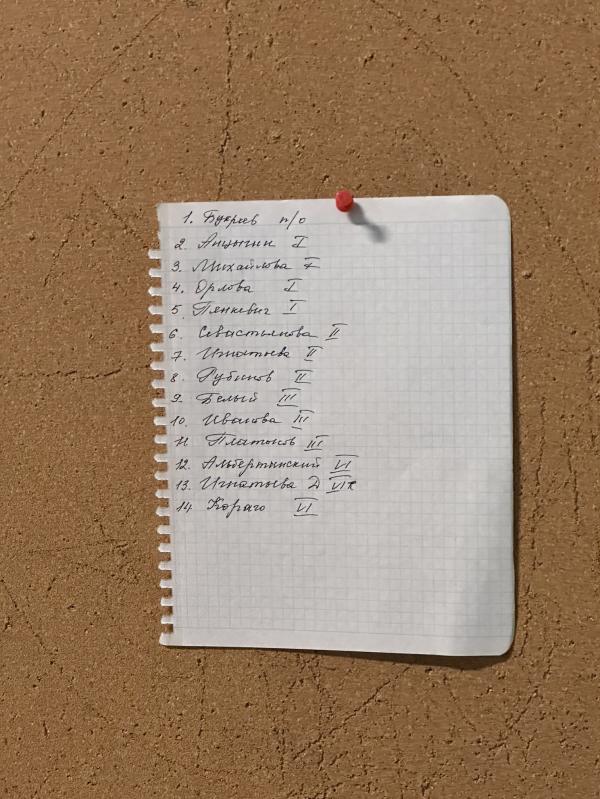 1. Букреев п/о
2. Анцыгин I
3. Михайлова I
4. Орлова I
5. Пенкевич I
6. Севастьянова II
7. Игнатьева II
8. Рубинов II
9. Белый III
10. Иванова III
11. Платонов III
12. Альбертинский VI
13. Игнатьева Д VI
14 Кораго VI